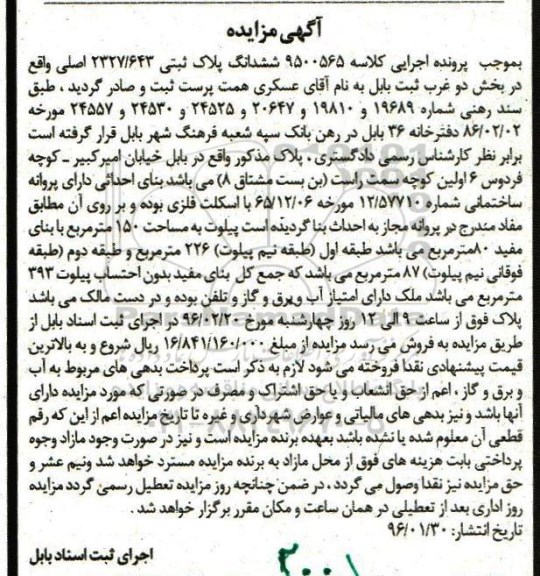 آگهی مزایده
بموجب پرونده اجرایی کلاسه ۹۵۰۰۵۶۵ ششدانگ پلاک ثبتی ۲۳۲۷/۶۴۳ اصلی واقع
در بخش دو غرب ثبت بابل به نام آقای عسکری همت پرست ثبت و صادر گردید ، طبق
سند رهنی شماره ۱۹۶۸۹ و ۱۹۸۱۰ و ۲۰۶۴۷ و ۲۴۵۲۵ و ۲۴۵۳۰ و ۲۴۵۵۷ مورخه
۸۶/۰۲/۰۲ دفترخانه ۳۶ بابل در رهن بانک سپه شعبه فرهنگ شهر بابل قرار گرفته است
برابر نظر کارشناس رسمی دادگستری ، پلاک مذکور واقع در بابل خیابان امیرکبیر ـ کوچه
فردوس ۶ اولین کوچه سمت راست (بن بست مشتاق ۸) می باشد بنای احداثی دارای پروانه
ساختمانی شماره ۱۲/۵۷۷۱۰ مورخه ۶۵/۱۲/۰۶ با اسکلت فلزی بوده و بر روی آن مطابق
مفاد مندرج در پروانه مجاز به احداث بنا گردیده است پیلوت به مساحت ۱۵۰ مترمربع با بنای
مفید ۸۰مترمربع می باشد طبقه اول (طبقه نیم پیلوت) ۲۲۶ مترمربع و طبقه دوم (طبقه
فوقانی نیم پیلوت) ۸۷ مترمربع می باشد که جمع کل بنای مفید بدون احتساب پیلوت ۳۹۳
مترمربع می باشد ملک دارای امتیاز آب و برق و گاز و تلفن بوده و در دست مالک می باشد
پلاک فوق از ساعت ۹ الی ۱۲ روز چهارشنبه مورخ ۹۶/۰۲/۲۰ در اجرای ثبت اسناد بابل از
طریق مزایده به فروش می رسد مزایده از مبلغ ۱۶/۸۴۱/۱۶۰/۰۰۰ ریال شروع و به بالاترین
قیمت پیشنهادی نقدا فروخته می شود لازم به ذکر است پرداخت بدهی های مربوط به آب
و برق و گاز ، اعم از حق انشعاب و یا حق اشتراک و مصرف در صورتی که مورد مزایده دارای
آنها باشد و نیز بدهی های مالیاتی و عوارض شهرداری و غیره تا تاریخ مزایده اعم از این که رقم
قطعی آن معلوم شده یا نشده باشد بعهده برنده مزایده است و نیز در صورت وجود مازاد وجوه
پرداختی بابت هزینه های فوق از محل مازاد به برنده مزایده مسترد خواهد شد ونیم عشر و
حق مزایده نیز نقدا وصول می گردد ، در ضمن چنانچه روز مزایده تعطیل رسمی گردد مزایده
روز اداری بعد از تعطیلی در همان ساعت و مکان مقرر برگزار خواهد شد .
تاریخ انتشار: ۹۶/۰۱/۳۰
اجرای ثبت اسناد بابل